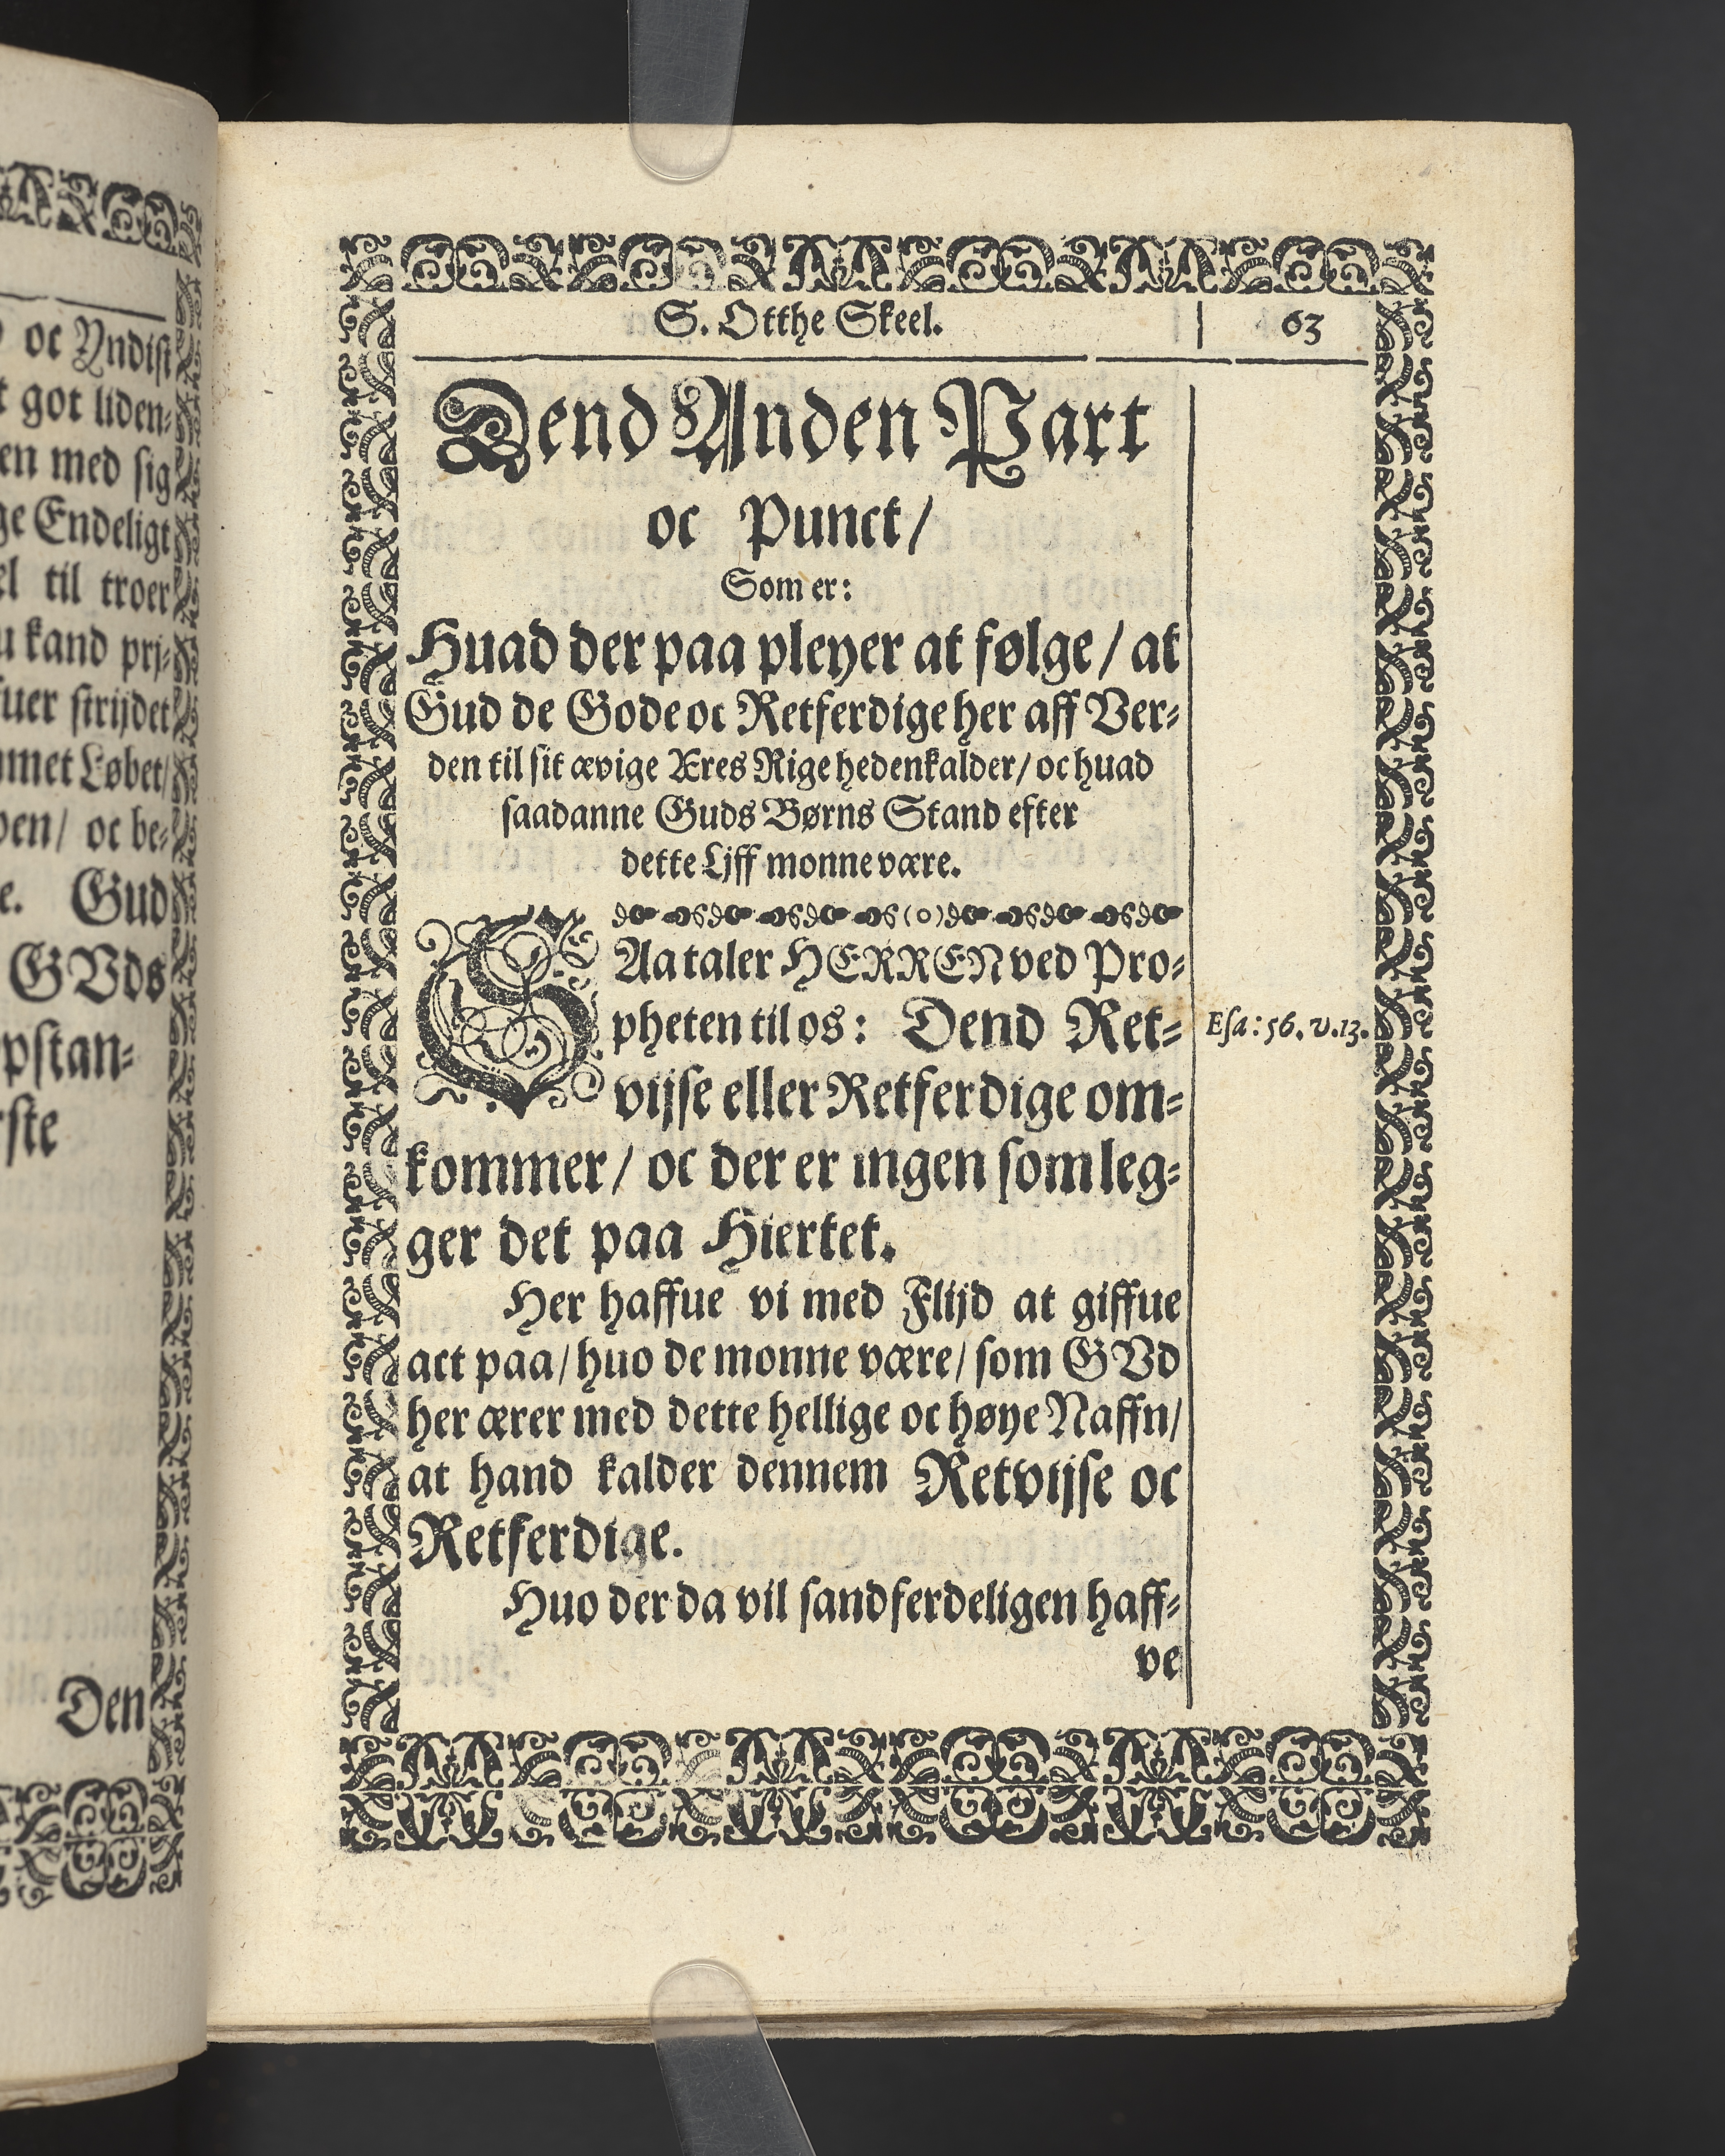 oc Yndist
t got liden⸗
en med sig
ge Endeligt
el til troer
u kand prj⸗
fuer strijdet
mmet Løbet/
oen/ oc be⸗
e. Gud
GVds
pstan⸗
rste
Den
S. Otthe Skeel. 63
Dend Anden Part
oc Punct/
Som er:
Huad der paa pleyer at følge/ at
Gud de Gode oc Retferdige her aff Ver⸗
den til sit ævige Æres Rige hedenkalder/ oc huad
saadanne Guds Børns Stand efter
dette Ljff monne være.
SAa taler HERREN ved Pro⸗
pheten til os: Dend Ret⸗
Esa: 56. v. 13.
vijse eller Retferdige om⸗
kommer/ oc der er ingen som leg⸗
ger det paa Hiertet.
Her haffue vi med Flijd at giffue
act paa/ huo de monne være/ som GVd
her ærer med dette hellige oc høye Naffn/
at hand kalder dennem Retvijse oc
Retferdige.
Huo der da vil sandferdeligen haff⸗
ve